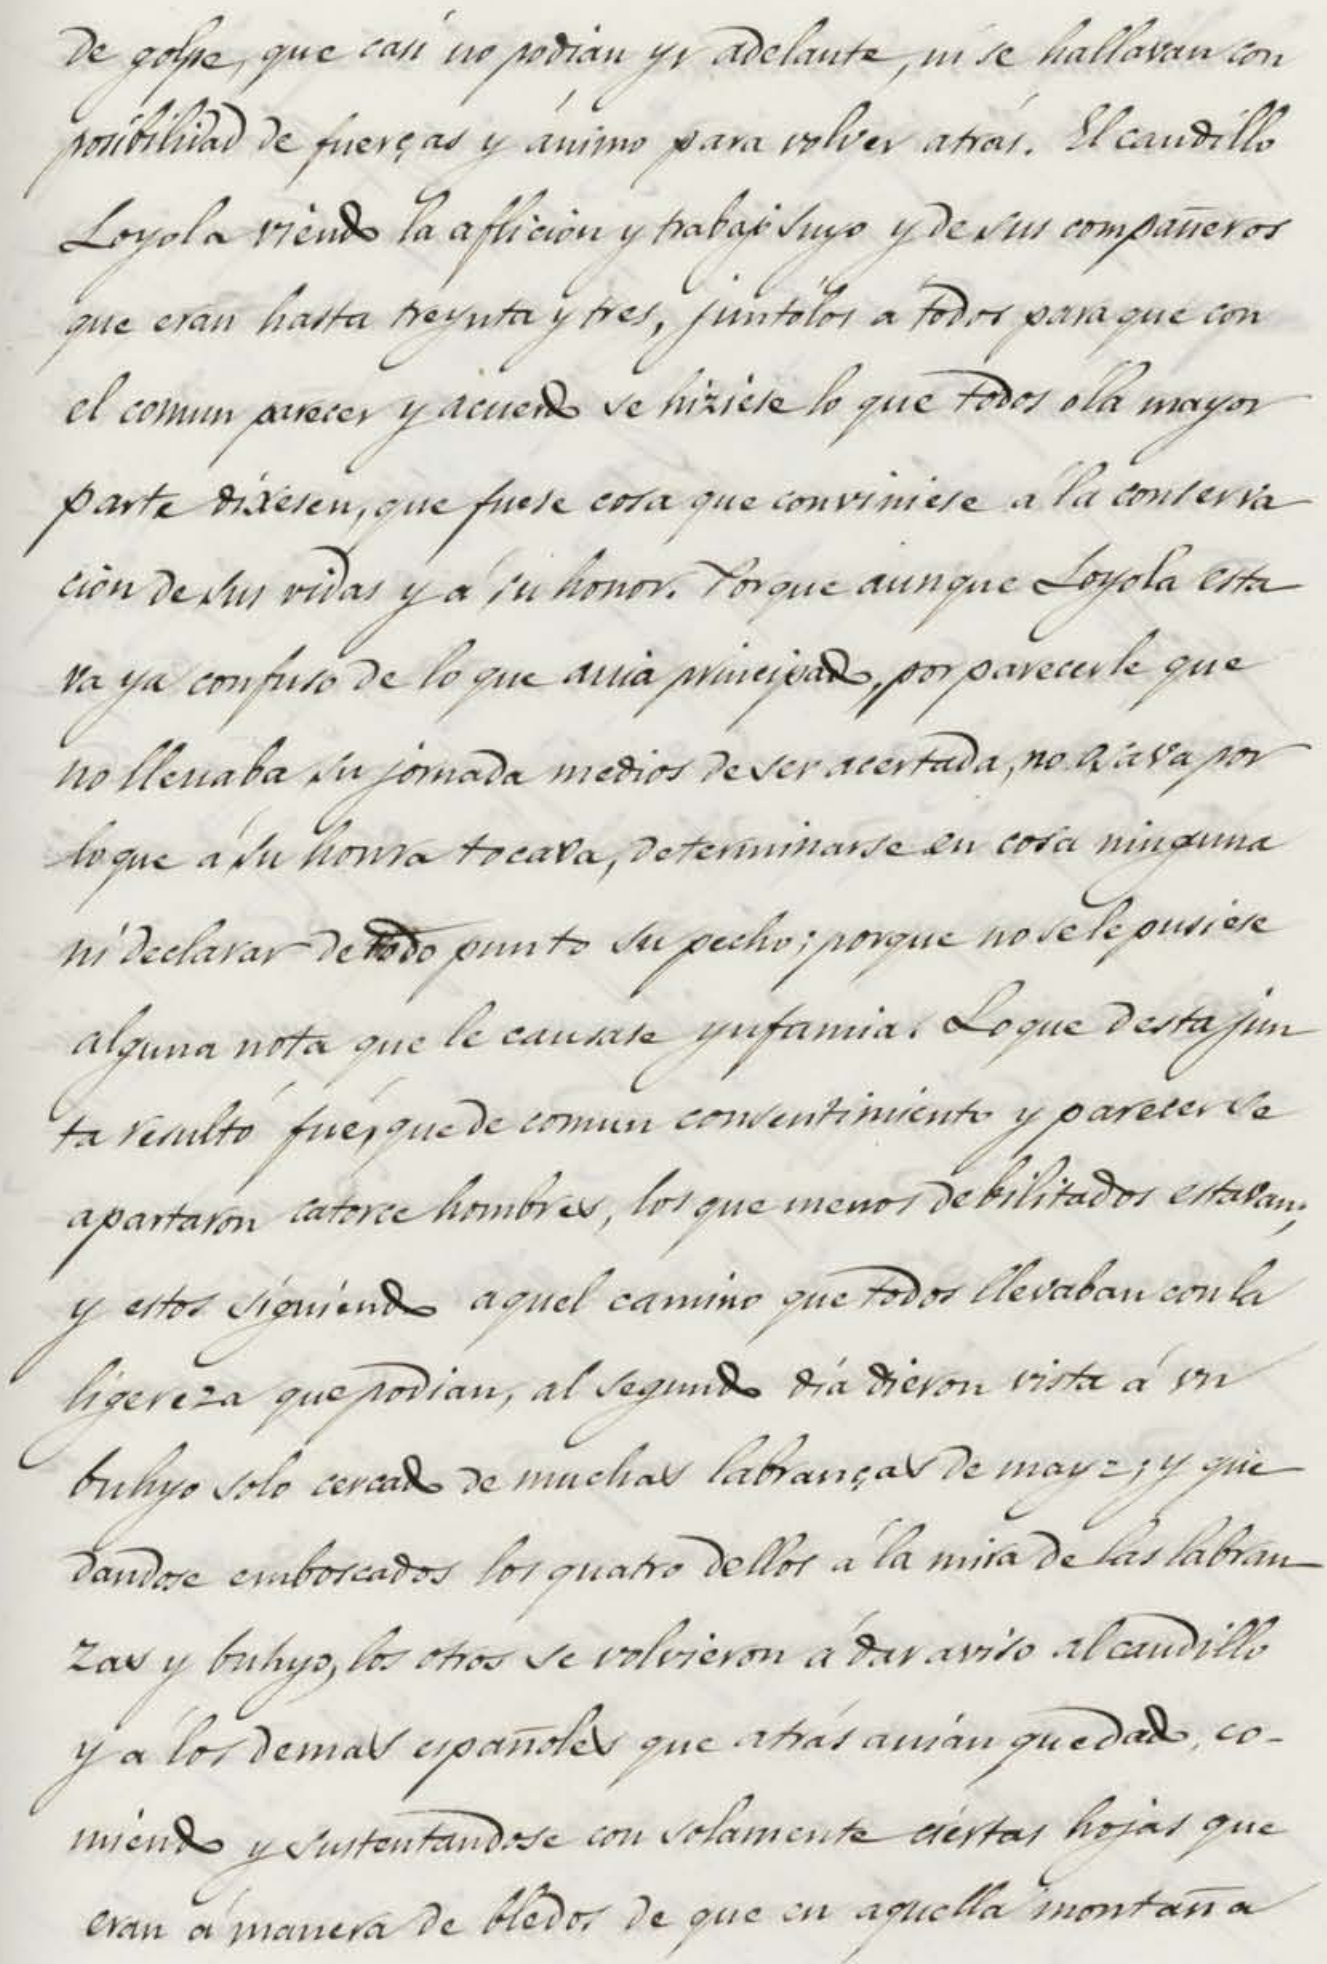 de golpe, que casi no podian yr adelante, ni se hallavan con
posibilidad de fuerças y ánimo para volver atrás. El caudillo
Loyola viendo la aflicion y trabajo suyo y de sus compañeros
que eran hasta treynta y tres, juntólos a todos para que con
el comun parecer y acuerdo se hiziese lo que todos ó la mayor
parte dixesen, que fuese cosa que conviniese a la conserva
ción de sus vidas y a su honor. Porque aunque Loyola esta
va ya confuso de lo que auia principado, por parecerle que
no lleuaba su jornada medios de ser acertada, no osava por
lo que á su honra tocava, determinarse en cosa ninguna
ni declarar de todo punto su pecho; porque no se le pusiese
alguna nota que le causase ynfamia. Lo que desta jun
ta resultó fué, que de comun consentimiento y parecer se
apartaron catorce hombres, los que menos debilitados estavan;
y estos siguiendo aquel camino que todos llevaban con la
ligereza que podian, al segundo día dieron vista á vn
buhyo solo cercado de muchas labranças de mayz; y que
dandose emboscados los quatro dellos a la mira de las labran
zas y buhyo, los otros se volvieron a dar aviso al caudillo
y a los demas españoles que atrás auian quedado, co-
miendo y sustentandose con solamente ciertas hojas que
eran á manera de bledos de que en aquella montaña